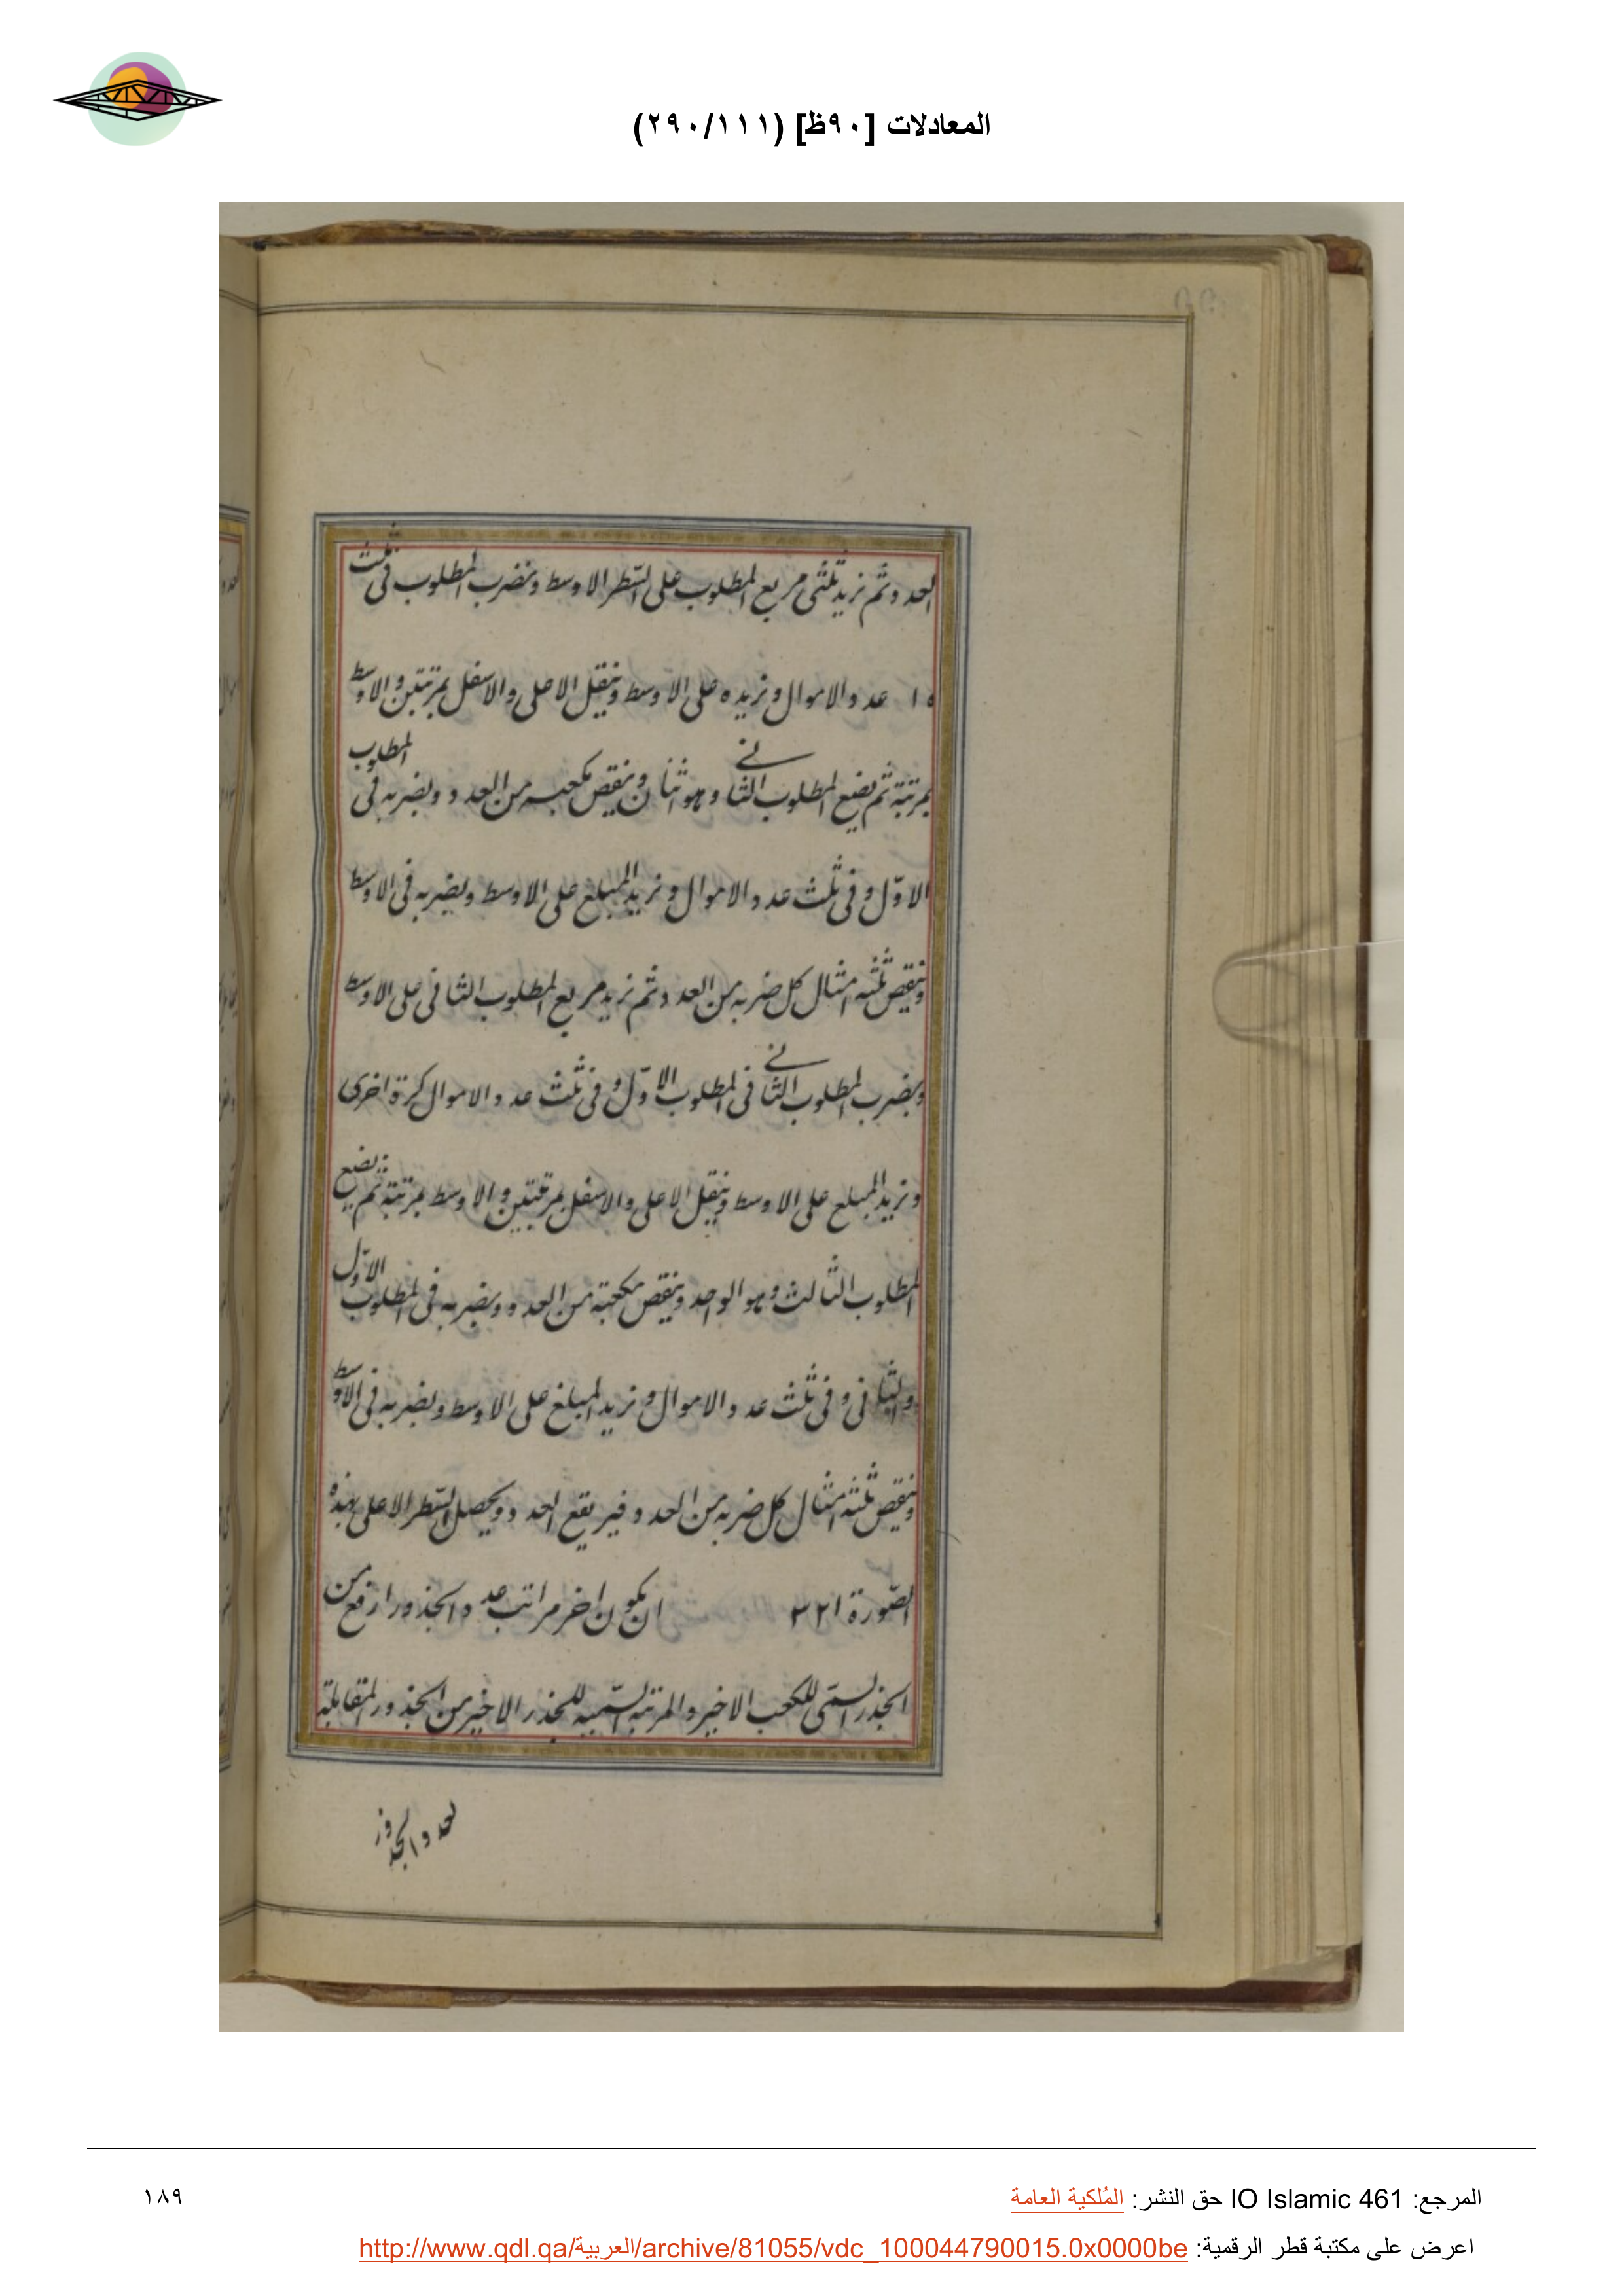 المعادلات [٩٠ظ] (٢٩٠/١١١)
العدد ثم نزيد ثلثى مربع المطلوب على السّطر الاوسط ونضرب المطلوب فى ثلث
عدد الاموال ونزيده على الاوسط وننقل الاعلى والاسفل بمرتبتين والاوسط
بمرتبة ثم نضع المطلوب الثانے وهو اثنان وننقص مكعبه من العدد ونضربه فى المطلوب
الاوّل وفى ثلث عدد الاموال ونزيد المبلغ على الاوسط ونضربه فى الاوسط
وننقص ثلثه امثال كل ضربه من العدد ثم نزيد مربع المطلوب الثانى على الاوسط
ونضرب المطلوب الثانے فى المطلوب الاوّل وفى ثلث عدد الاموال كرة اخرى
ونزيد المبلغ على الاوسط وننقل الاعلى والاسفل بمرتبتين والاوسط بمرتبة ثم نضع
المطلوب الثالث وهو الواحد وننقص مكعبه من العدد ونضربه فى المطلوب الاوّل
والثانى وفى ثلث عدد الاموال ونزيد المبلغ على الاوسط ونضربه فى الاوسط
وننقص ثلثه امثال كل ضربه من العدد فيرتفع العدد ويحصل السّطر الاعلى بهذه
الصّورة ٣٢١ ان يكون اخر مراتب عدد الجذور ارفع من
الجذر السمّى للكعب الاخير والمرتبة السّمية للجذر الاخير من الجذور المتقابلة
لعدد الجذور
المرجع: IO Islamic 461 حق النشر: المُلكية العامة
١٨٩
اعرض على مكتبة قطر الرقمية: http://www.qdl.qa/العربية/archive/81055/vdc_100044790015.0x0000be